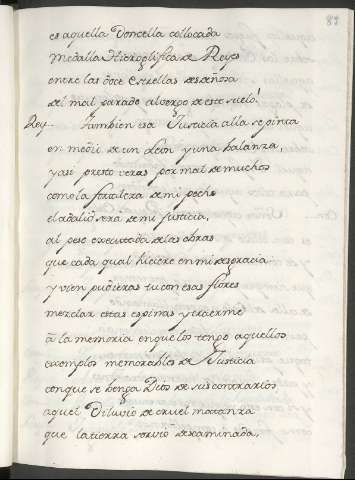 87
es aquella Doncella collocada
Medalla Hieroglifica de Reyes
entre las doce estrellas desdeñosa
del mal parado alvergo de este suelo!
Rey. Tambien esa Justicia alla se pinta
en medio de un Leon y una balanza,
y asi presto veras por mal de muchos
como la fortaleza de mi pecho
el adalid será de mi justicia,
al peso executada de las obras
que cada qual hiciere en mi desgracia
y vien pudieras tu con esas flores
mezclar estas espinas y traerme
à la memoria en que los tengo aquellos
exemplos memorables de Justicia
con que se benga Dios de sus contrarios
aquel Diluvio de cruel matanza
que la tierra sorvió descaminada,